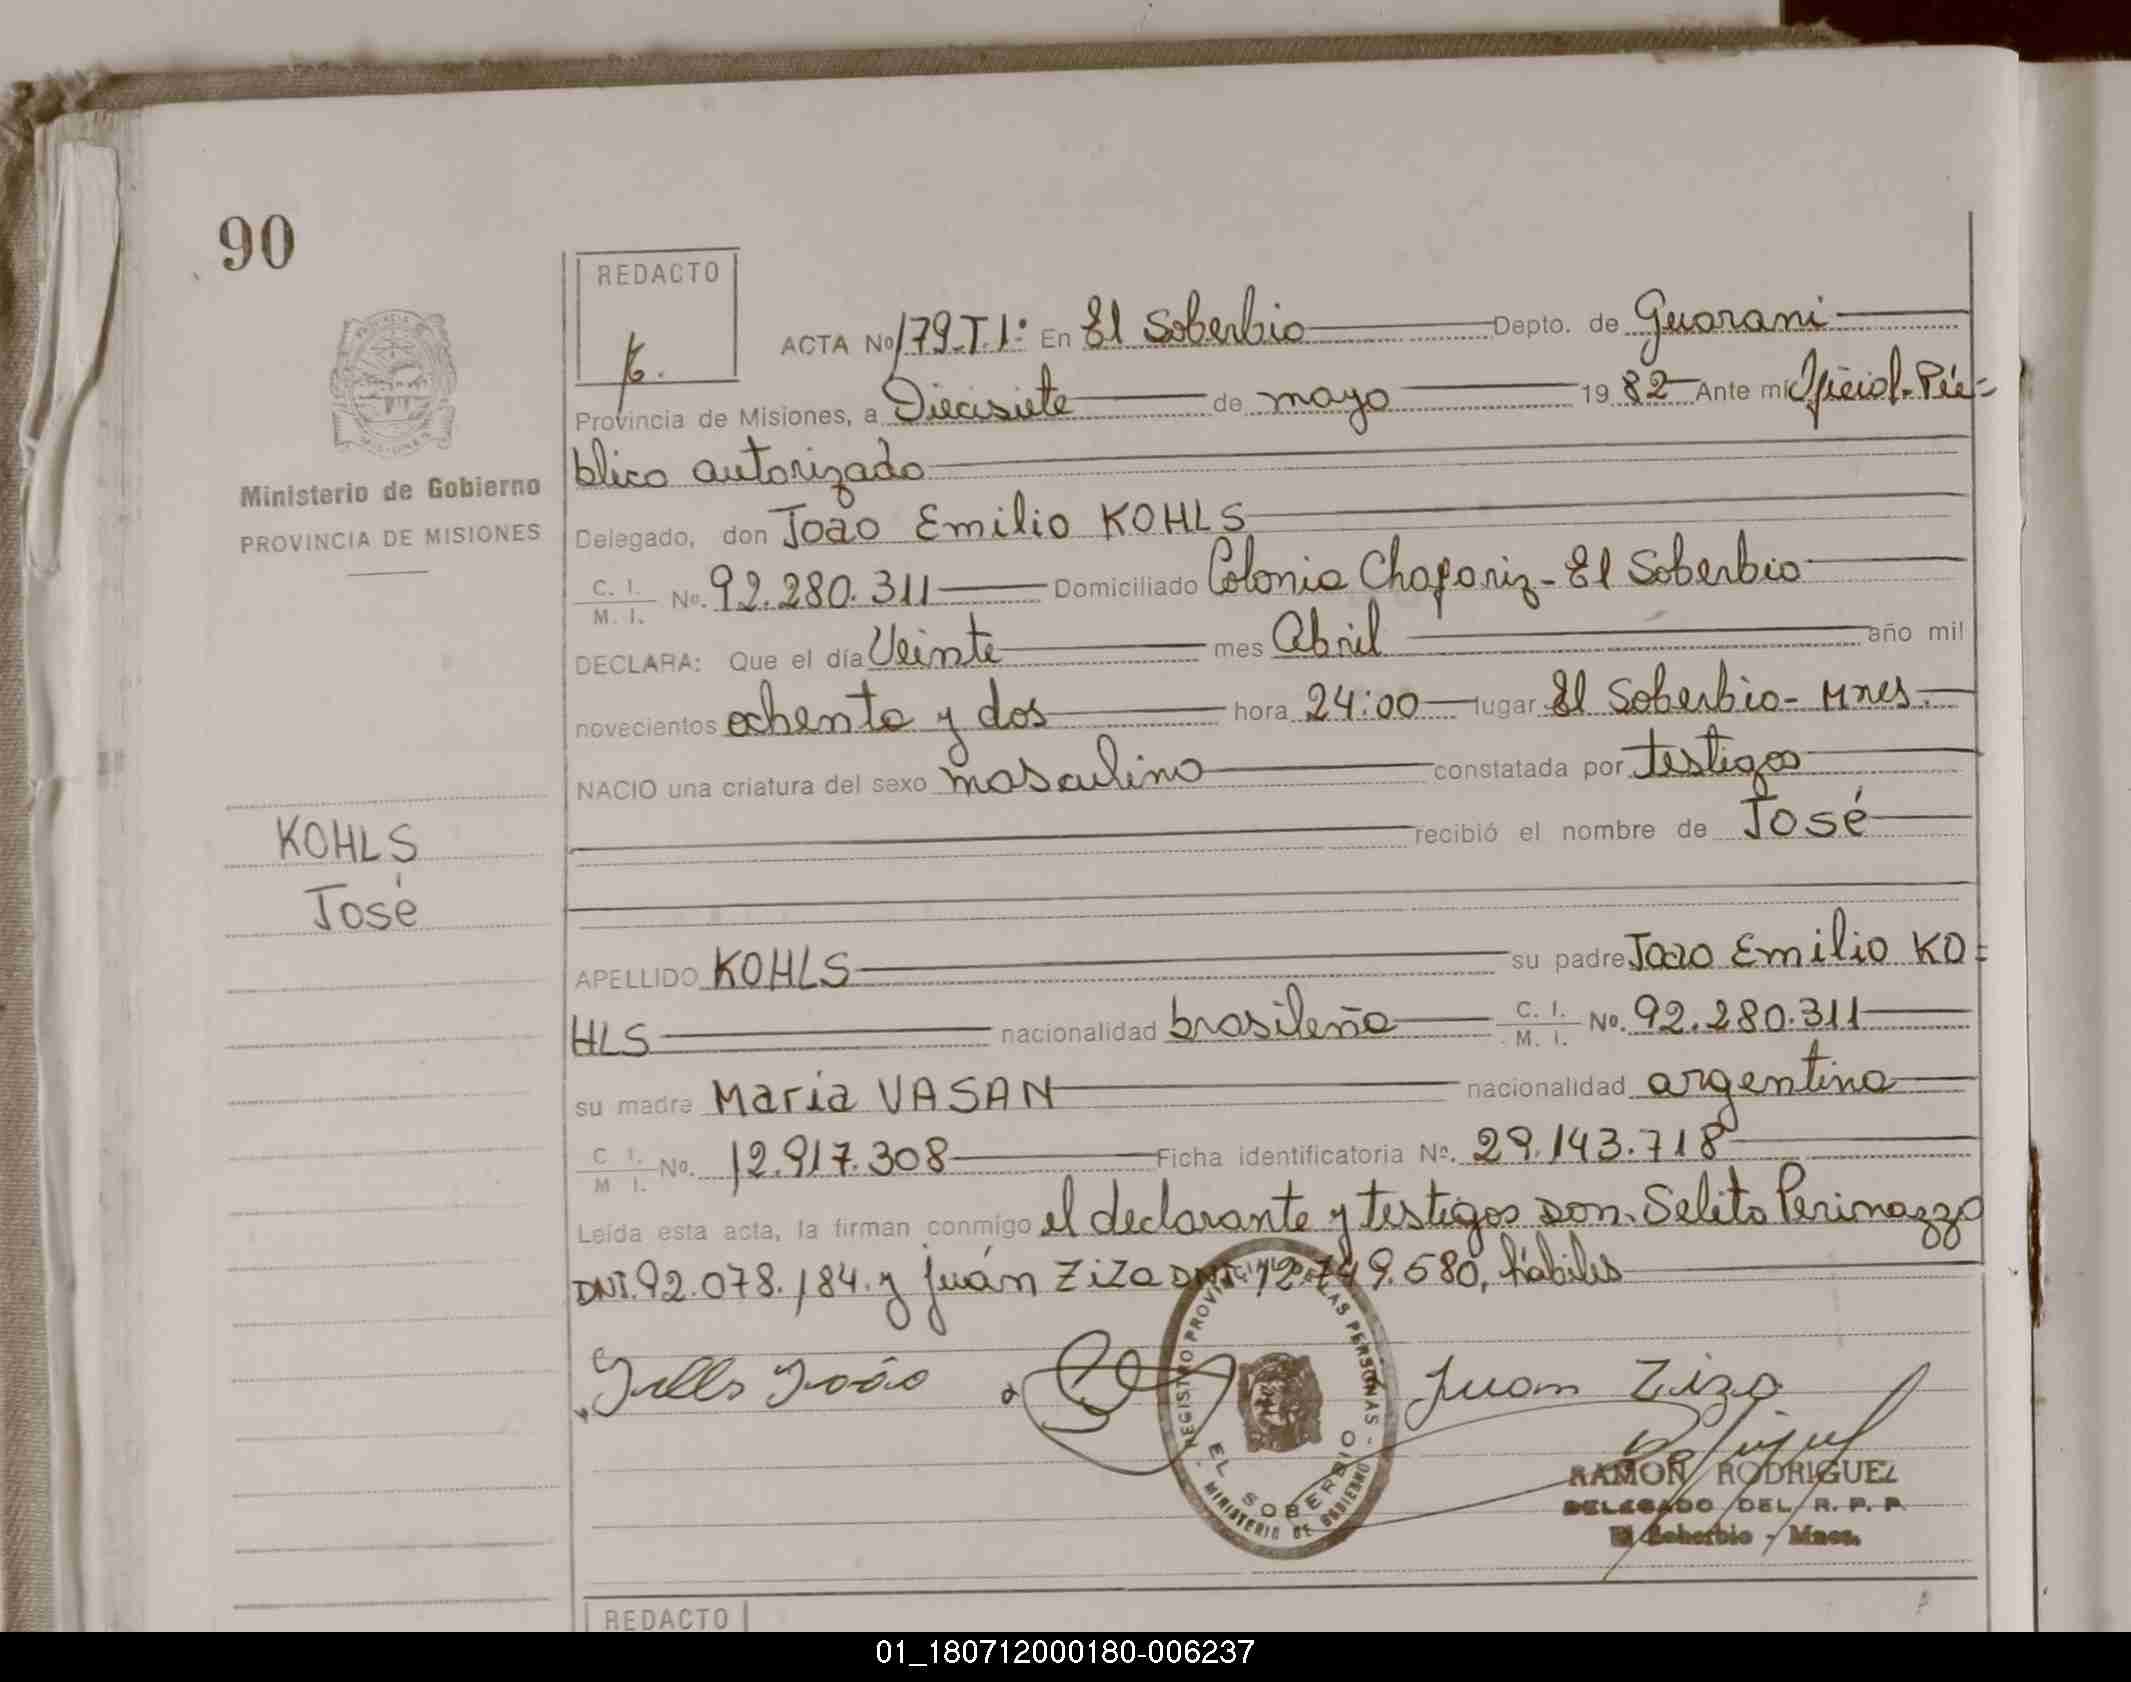 90
REDACTO
ACTA No 179.T.1º En El Soberbio Depto. de Guarani
Provincia de Misiones, a Diecisiete de mayo 19 82 Ante mí Oficial Pú=
blico autorizado
Delegado, don Joao Emilio KOHLS
C. I. M. I. No. 92.280.311 Domiciliado Colonia Chafariz - El Soberbio
DECLARA: Que el día Veinte mes Abril año mil
novecientos ochenta y dos hora 24:00 lugar El Soberbio - Mnes.
NACIO una criatura del sexo masculino constatada por testigos
recibió el nombre de José
APELLIDO KOHLS su padre Joao Emilio KO=
HLS nacionalidad brasileña C. I. M. I. No. 92.280.311
su madre Maria VASAN nacionalidad argentina
C. I. M. I. No. 12.917.308 Ficha identificatoria No. 29.143.718
Leída esta acta, la firman conmigo el declarante y testigos Don. Selito Perinazzo
DNI. 92.078.184. y Juán Ziza DNI. 12.749.680, hábiles
João
Juan Ziza
Ministerio de Gobierno
PROVINCIA DE MISIONES
KOHLS
José
REGISTRO PROVINCIAL DE LAS PERSONAS
EL SOBERBIO
MINISTERIO DE GOBIERNO
RAMON RODRIGUEZ
DELEGADO DEL R. P. P.
El Soberbio - Mnes.
REDACTO
01_180712000180-006237